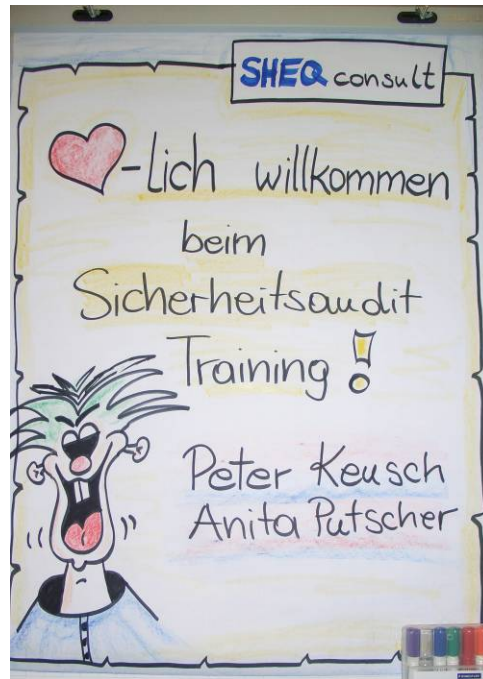 SHEQ consult
-lich willkommen
beim
Sicherheitsaudit
Training!
Peter Keusch
Anita Putscher